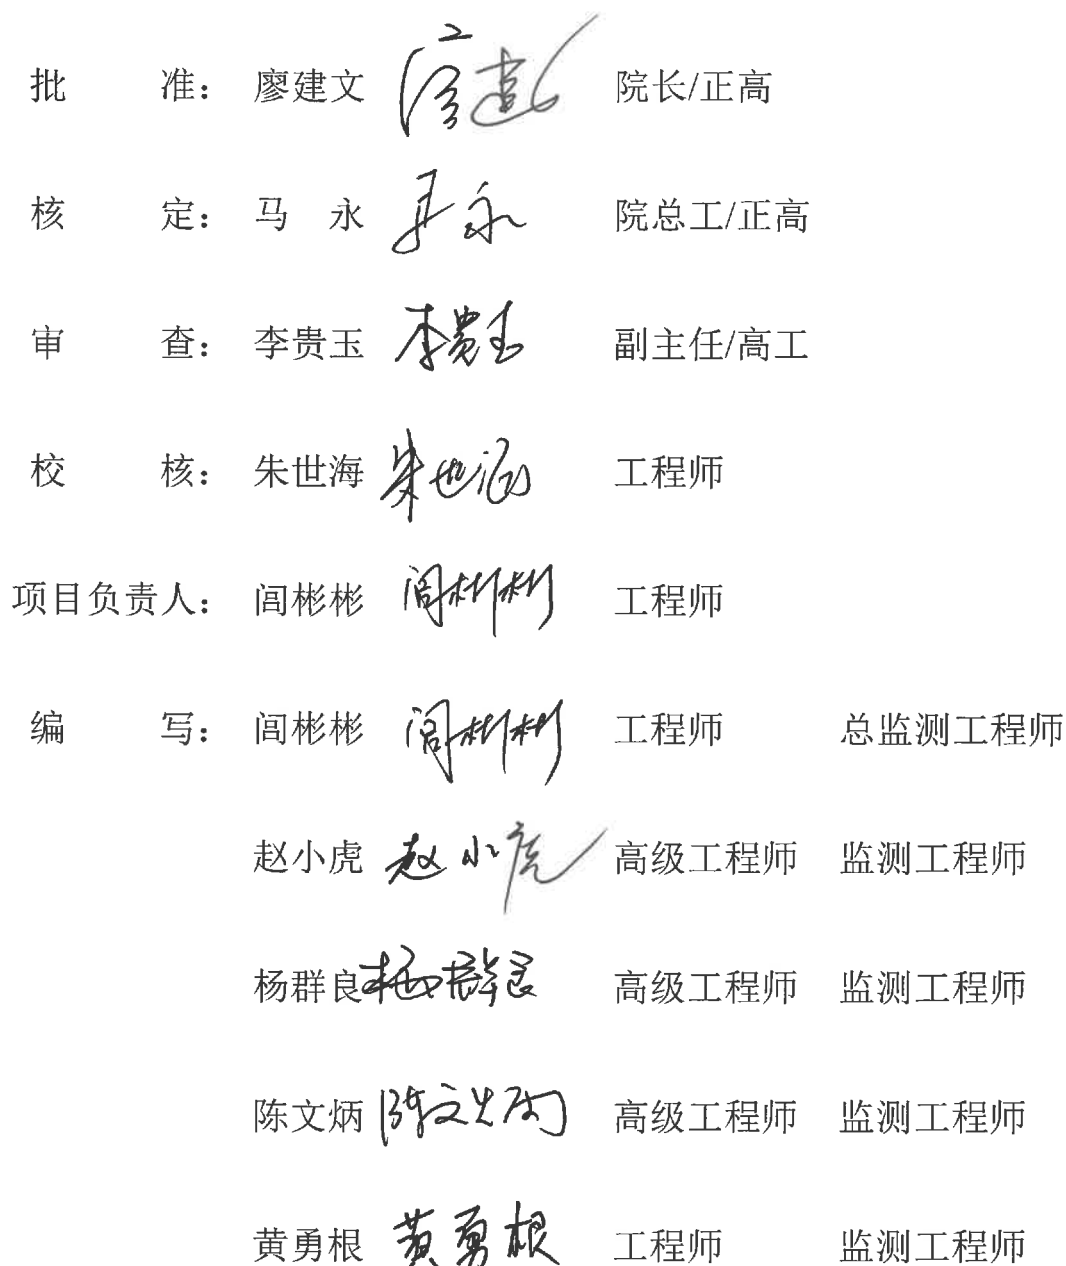 批 准： 廖建文 廖建文 院长/正高
核 定： 马 永 马永 院总工/正高
审 查： 李贵玉 李贵玉 副主任/高工
校 核： 朱世海 朱世海 工程师
项目负责人： 闾彬彬 闾彬彬 工程师
编 写： 闾彬彬 闾彬彬 工程师 总监测工程师
赵小虎 赵小虎 高级工程师 监测工程师
杨群良 杨群良 高级工程师 监测工程师
陈文炳 陈文炳 高级工程师 监测工程师
黄勇根 黄勇根 工程师 监测工程师